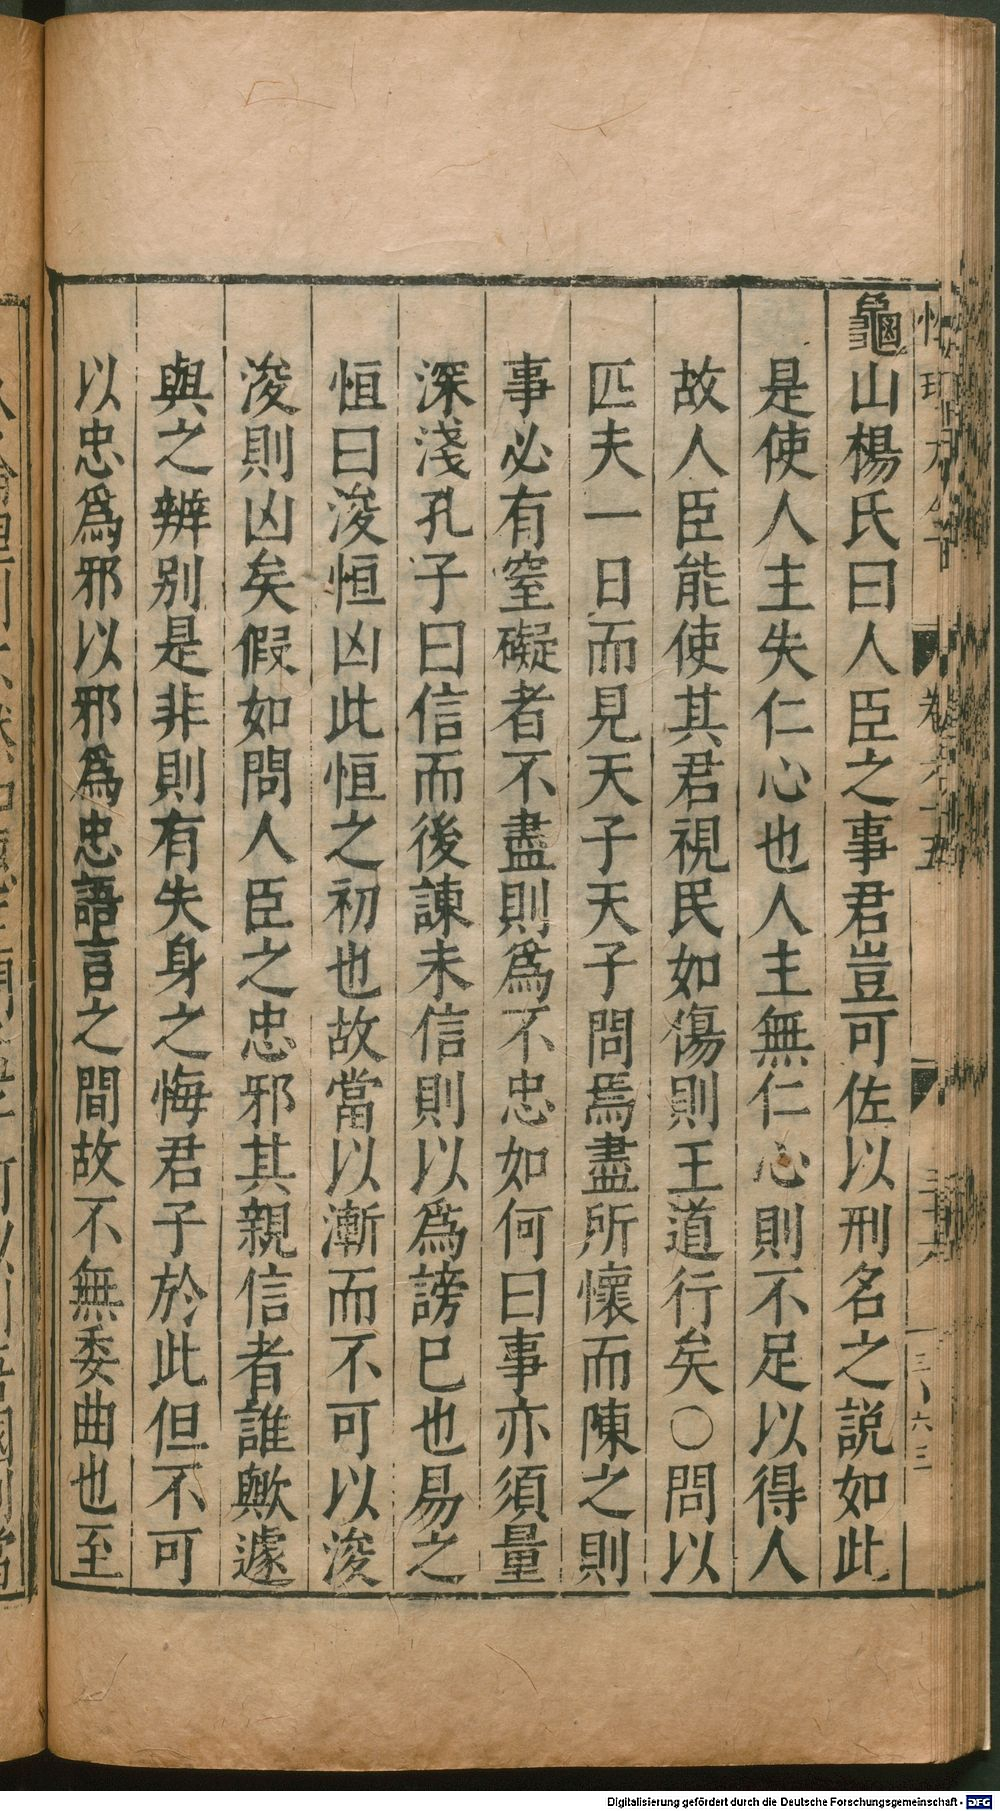 龜山楊氏曰人臣之事君豈可佐以刑名之説如此
是使人主失仁心也人主無仁心則不足以得人
故人臣能使其君視民如傷則王道行矣○問以
匹夫一日而見天子天子問焉盡所懷而陳之則
事必有窒礙者不盡則爲不忠如何曰事亦須量
深淺孔子曰信而後諫未信則以爲謗已也易之
恒曰浚恒凶此恒之初也故當以漸而不可以浚
浚則凶矣假如問人臣之忠邪其親信者誰歟遽
與之辨别是非則有失身之悔君子於此但不可
以忠爲邪以邪爲忠語言之間故不無委曲也至
Digitalisierung gefördert durch die Deutsche Forschungsgemeinschaft - DFG